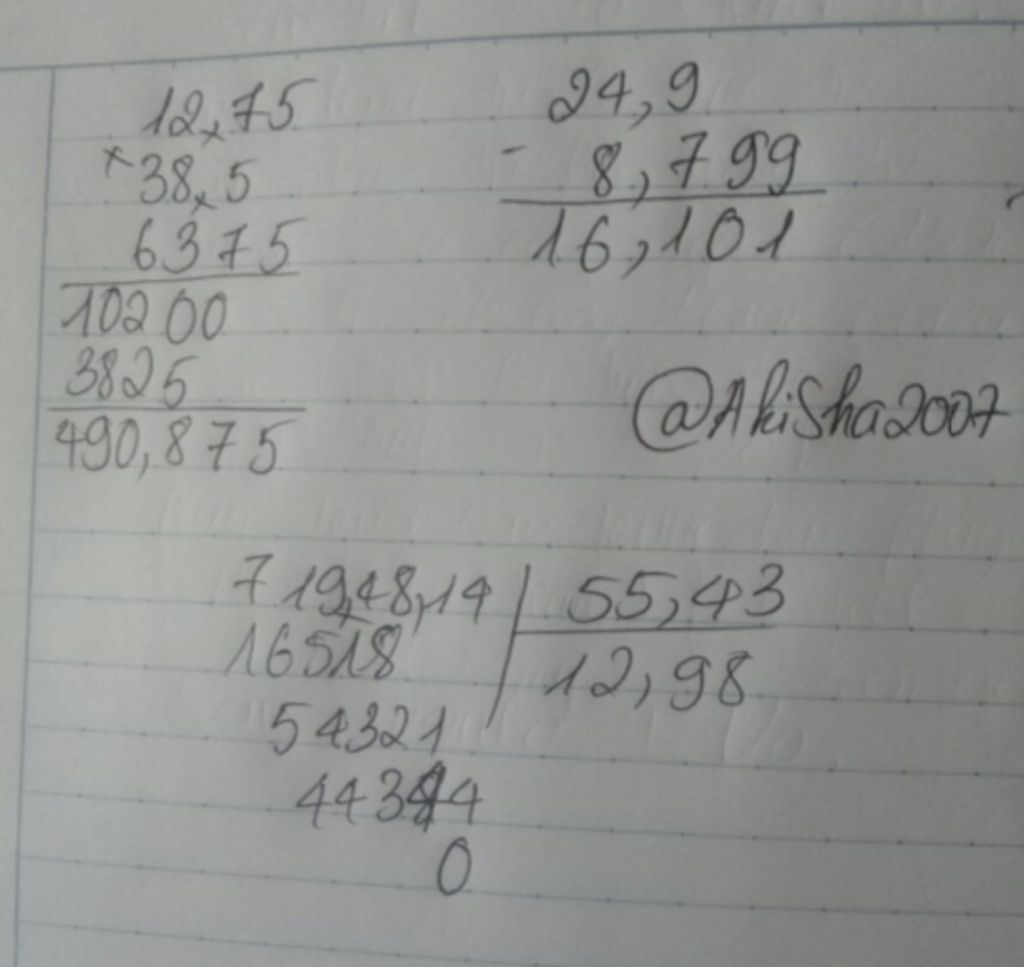 12,75
× 38,5
6375
10200
3825
490,875
24,9
- 8,799
16,101
@AkiSha2007
719,48,14 | 55,43
16518 | 12,98
54321
44344
0